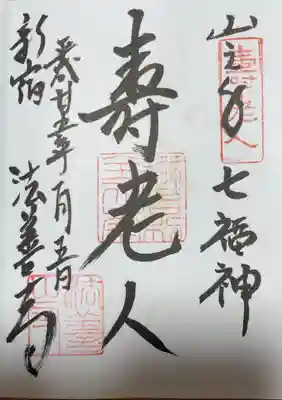 山之手七福神
寿老人
平成廿五年一月五日
新宿 法善寺